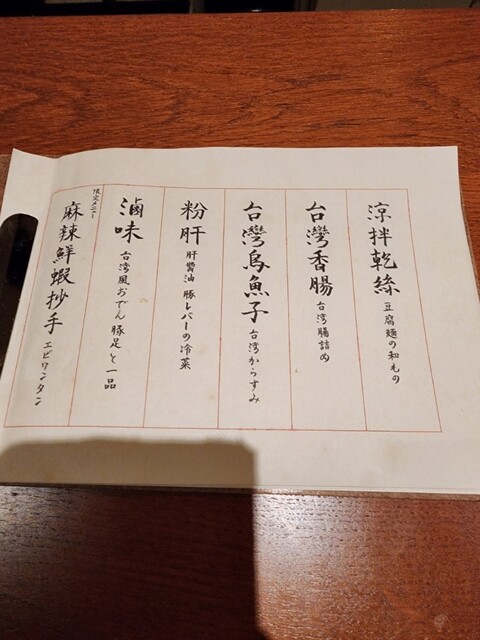 涼拌乾絲 豆腐麺の和えもの
台灣香腸 台湾腸詰め
台灣烏魚子 台湾からすみ
粉肝 肝醤油 豚レバーの冷菜
滷味 台湾風おでん 豚足と一品
限定メニュー
麻辣鮮蝦抄手 エビワンタン